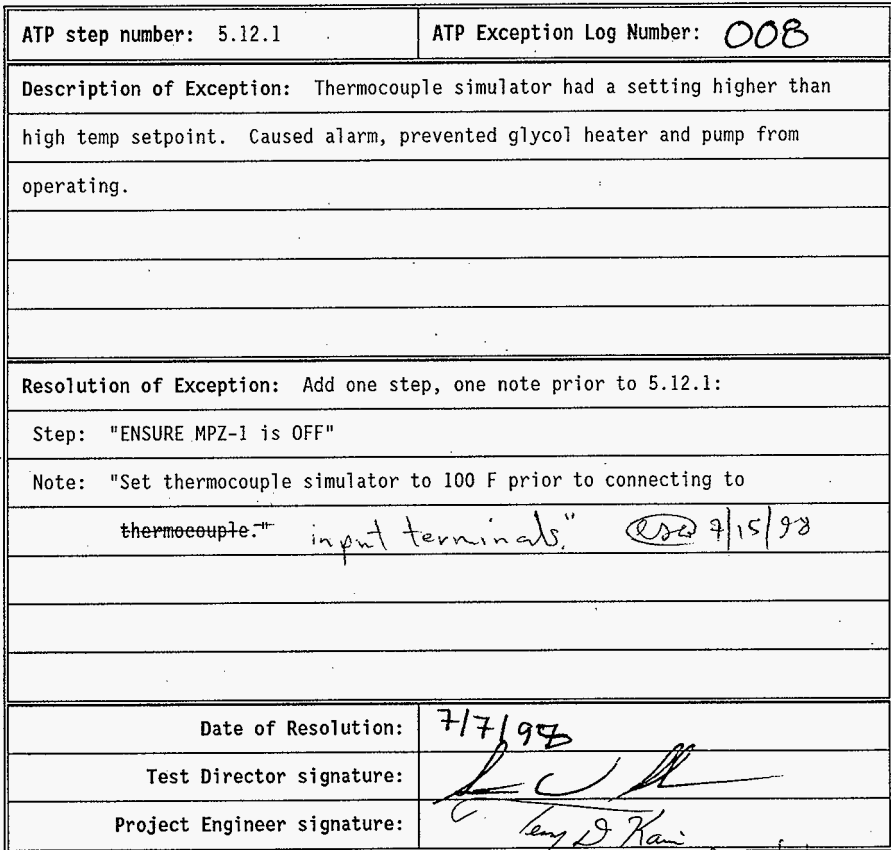 ATP step number: 5.12.1
ATP Exception Log Number: 008
Description of Exception: Thermocouple simulator had a setting higher than
high temp setpoint. Caused alarm, prevented glycol heater and pump from
operating.
Resolution of Exception: Add one step, one note prior to 5.12.1:
Step: "ENSURE MPZ-1 is OFF"
Note: "Set thermocouple simulator to 100 F prior to connecting to
thermocouple." input terminals." 7/15/98
Date of Resolution: 7/7/98
Test Director signature:
Project Engineer signature: Terry D Kain